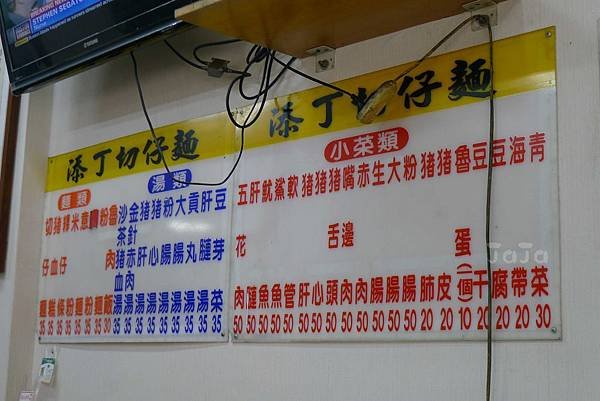 STEPHEN SEGATO
添丁切仔麵
麵類
切仔麵 35
豬血糕 35
粿仔條 35
米粉 35
意麵 35
魯肉飯 30
湯類
沙茶豬血湯 35
金針赤肉湯 35
豬肝湯 35
豬心湯 35
粉腸湯 35
大腸湯 35
貢丸湯 35
肝膁湯 35
豆芽菜 35
添丁切仔麵
小菜類
五花肉 50
肝膁 50
魷魚 50
鯊魚 50
軟管 50
豬肝 50
豬心 50
豬舌頭 50
嘴邊肉 50
赤肉 50
生腸 50
大腸 50
粉腸 50
豬肺 20
豬皮 20
魯蛋(一個) 10
豆干 20
豆腐 20
海帶 20
青菜 30
JaJa